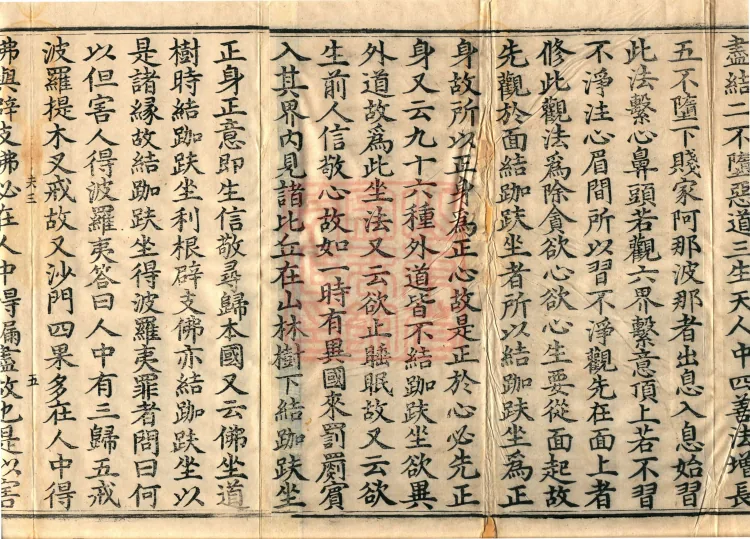 盡結二不墮惡道三生天人中四善法增長
五不墮下賤家阿那波那者出息入息始習
此法繫心鼻頭若觀六界繫意頂上若不習
不淨注心眉間所以習不淨觀先在面上者
修此觀法爲除貪欲心欲心生要從面起故
先觀於面結跏趺坐者所以結跏趺坐爲正
身故所以正身爲正心故是正於心必先正
身又云九十六種外道皆不結跏趺坐欲異
外道故爲此坐法又云欲止睡眠故又云欲
生前人信敬心故如一時有異國來罰罽賓
入其界內見諸比丘在山林樹下結跏趺坐
正身正意即生信敬尋歸本國又云佛坐道
樹時結跏趺坐利根辟支佛亦結跏趺坐以
是諸縁故結跏趺坐得波羅夷罪者問曰何
以但害人得波羅夷答曰人中有三歸五戒
波羅提木叉戒故又沙門四果多在人中得
夫三 五
佛與辟支佛必在人中得漏盡故也是以害